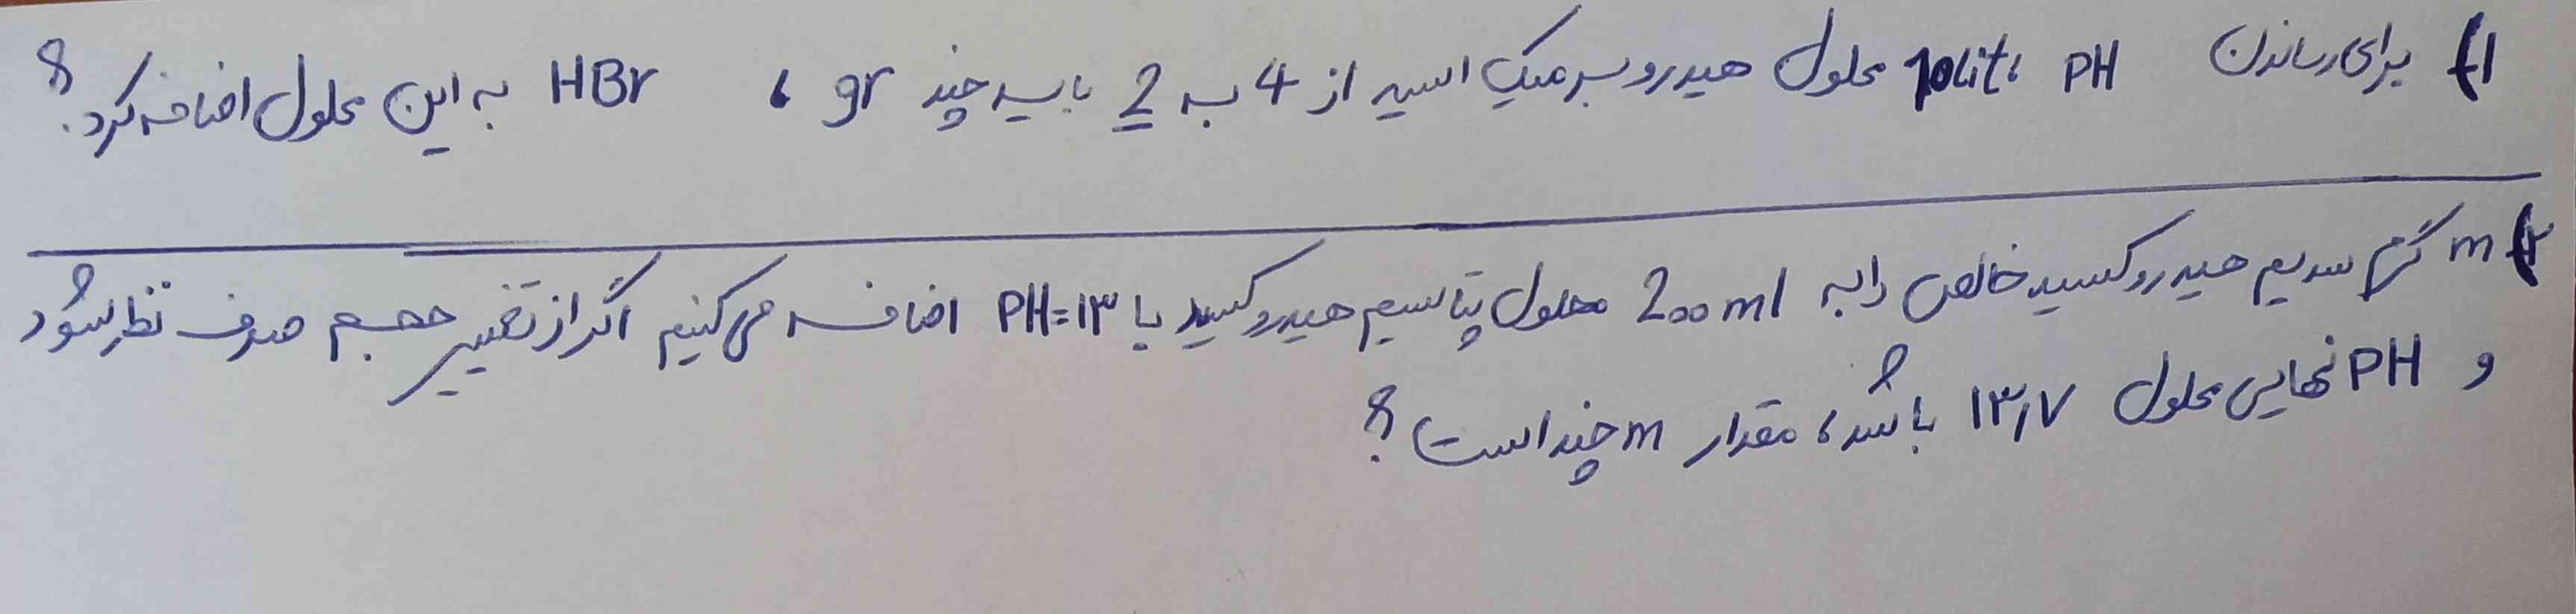 ۱) برای رساندن PH ،10lit محلول هیدروبرمیک اسید از 4 به 2 باید چند gr ، HBr به این محلول اضافه کرد؟
۲) m گرم سدیم هیدروکسید خالص را به 200ml محلول پتاسیم هیدروکسید با PH=۱۳ اضافه می‌کنیم اگر از تغییر حجم صرف نظر شود
و PH نهایی محلول ۱۳٫۷ باشد، مقدار m چند است؟